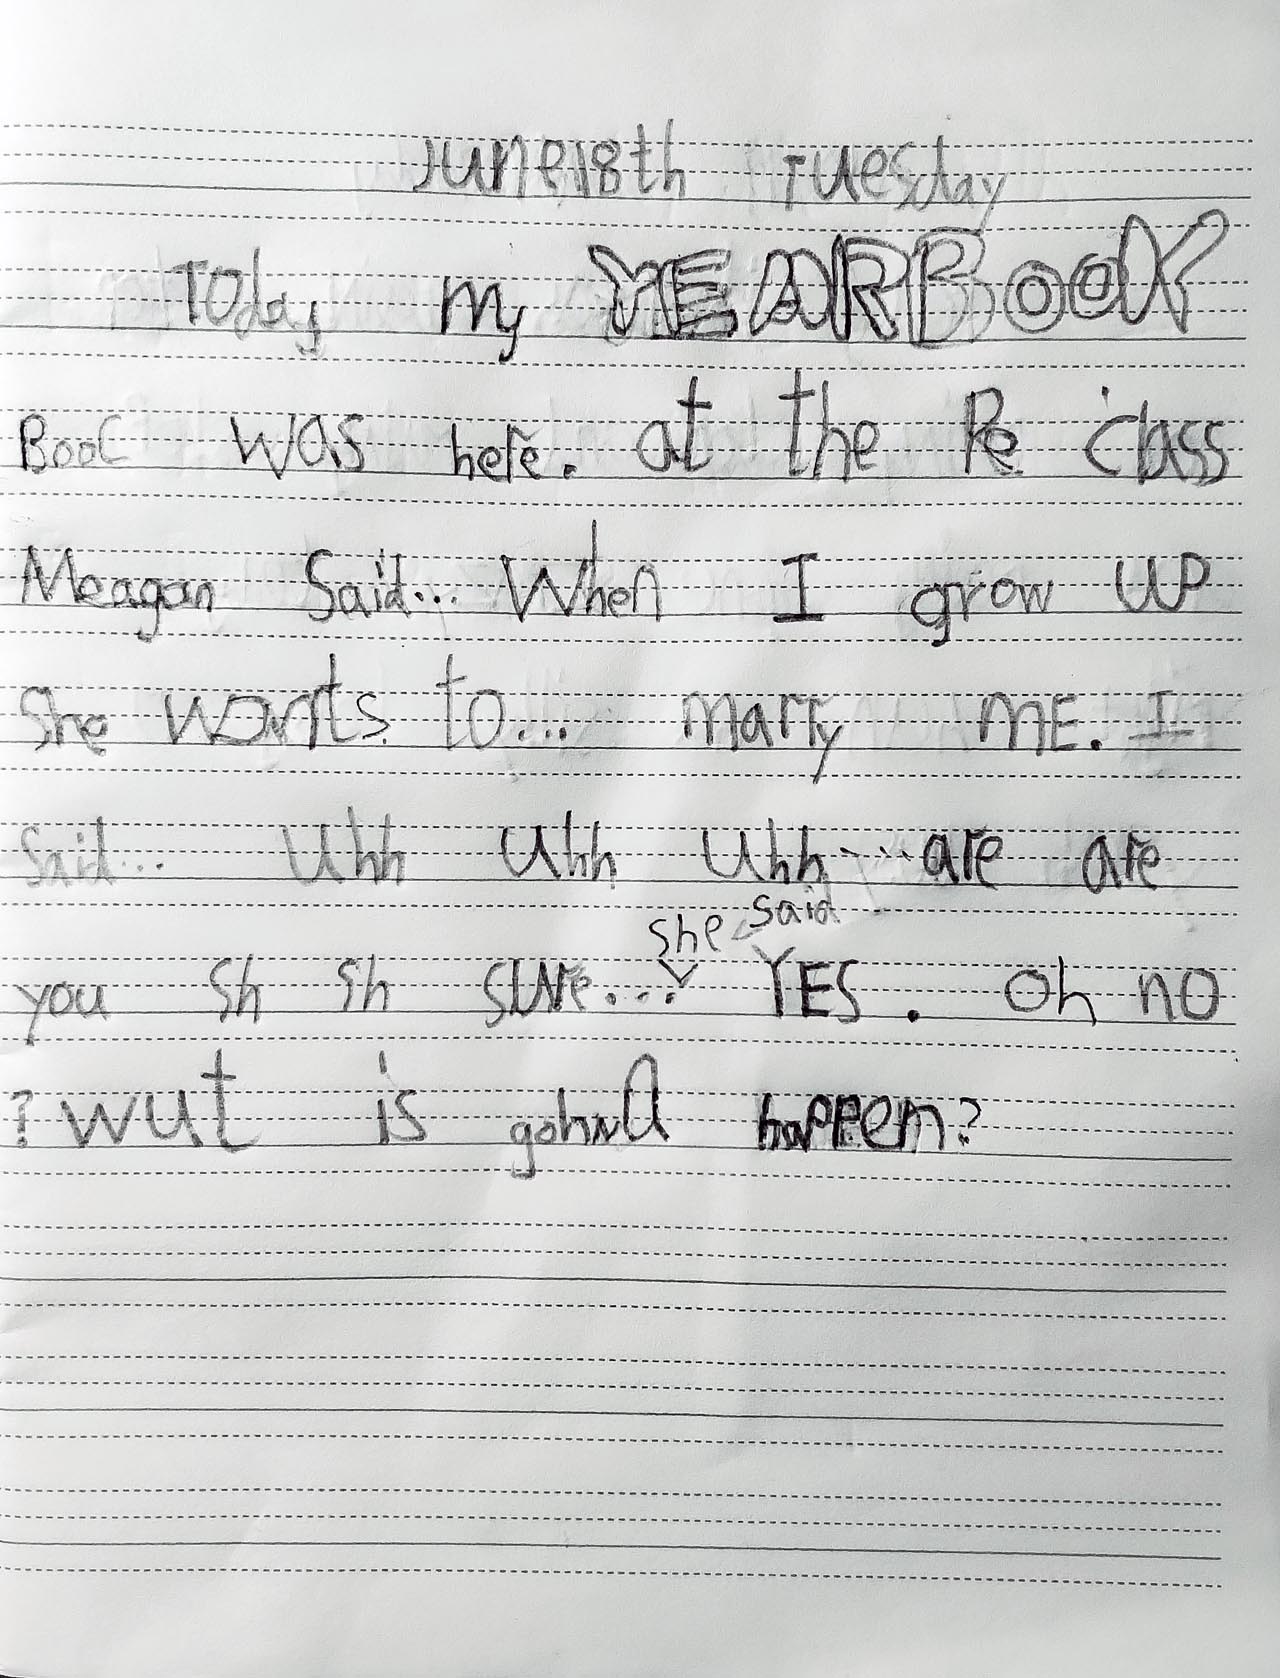 June 18th Tuesday
Today my YEARBOOK
Booc was here. at the Pe class
Meagan Said... When I grow up
She wants to.... marry ME. I
Said... Uhh Uhh Uhh.....are are
she said
you Sh Sh sure... YES. Oh no
? wut is gohnna happem?